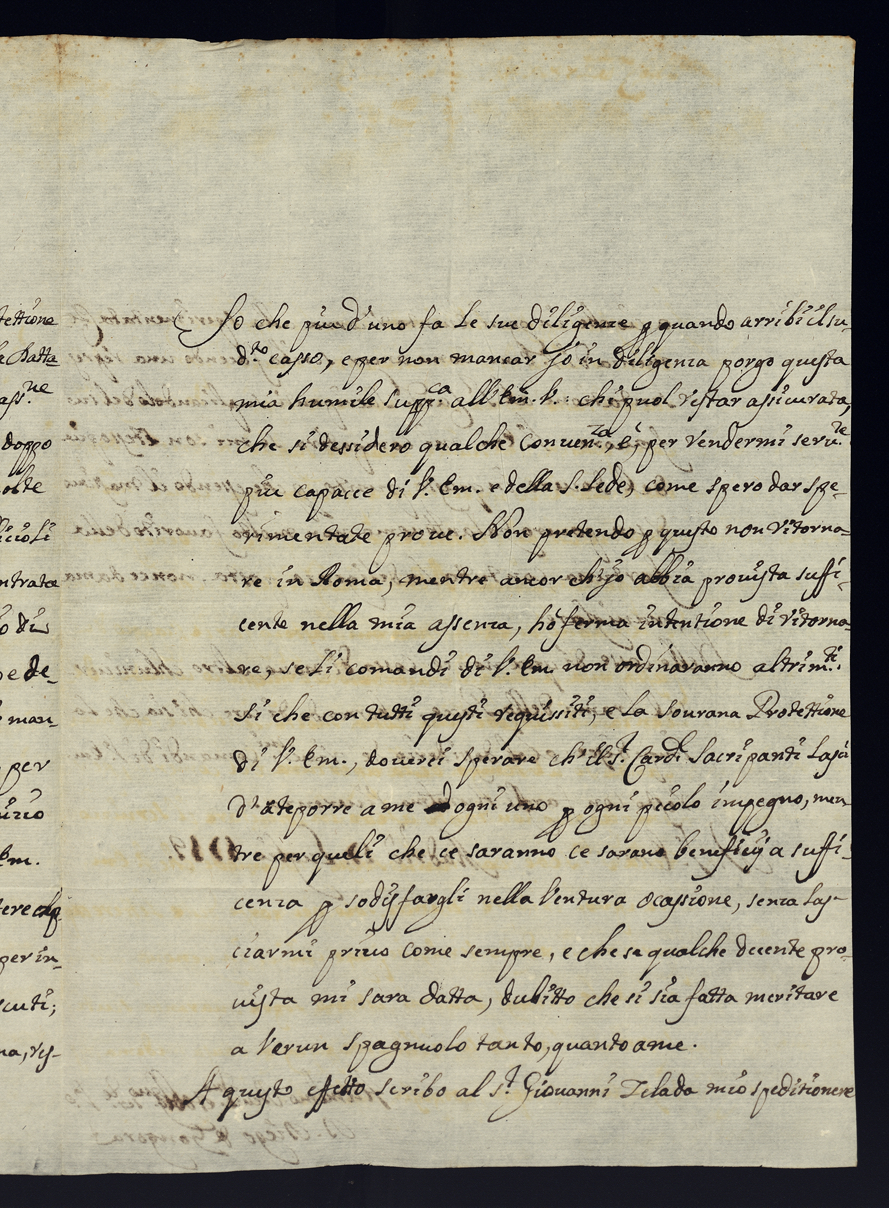 tettione
Datta
ass.ne
doppo
ntrata
o di
e de-
man-
per
Em.
per in-
So che piu d'uno fa le sue diligenze p quando arribi il su-
d.to casso, e per non mancar Jo in diligenza porgo questa
mia humile supp.ca all'Em. V.: chi puol restar assicurata,
che si dessidero qualche conuen.za, é, per rendermi seru.te
piu capacce di V. Em. e della S. Sede, come spero dar spe-
rimentate proue. Non pretendo p questo non ritorna-
re in Roma, mentre ancor ch'jo abbia prouista suffi-
cente nella mia assenza, hó ferma intentione di ritorna-
re, se li comandi di V. Em. non ordinaranno altrim.te:
si che con tutti questi requissiti, e la sourana Protettione
di V. Em., douerei sperare ch'il S.r Card.l Sacripanti lasci
d'ateporre a me ogni uno p ogni picolo impegno, men-
tre per queli che ce saranno ce sarano beneficij a suffi-
cenza p sodisfargli nella Ventura ocassione, senza las-
ciarmi priuo come sempre, e che se qualche decente pro-
uista mi sara datta, dubitto che si sia fatta meritare
a Verun spagnuolo tanto, quanto a me.
A questo effetto scribo al S.r Giovanni Zelada mio speditionere